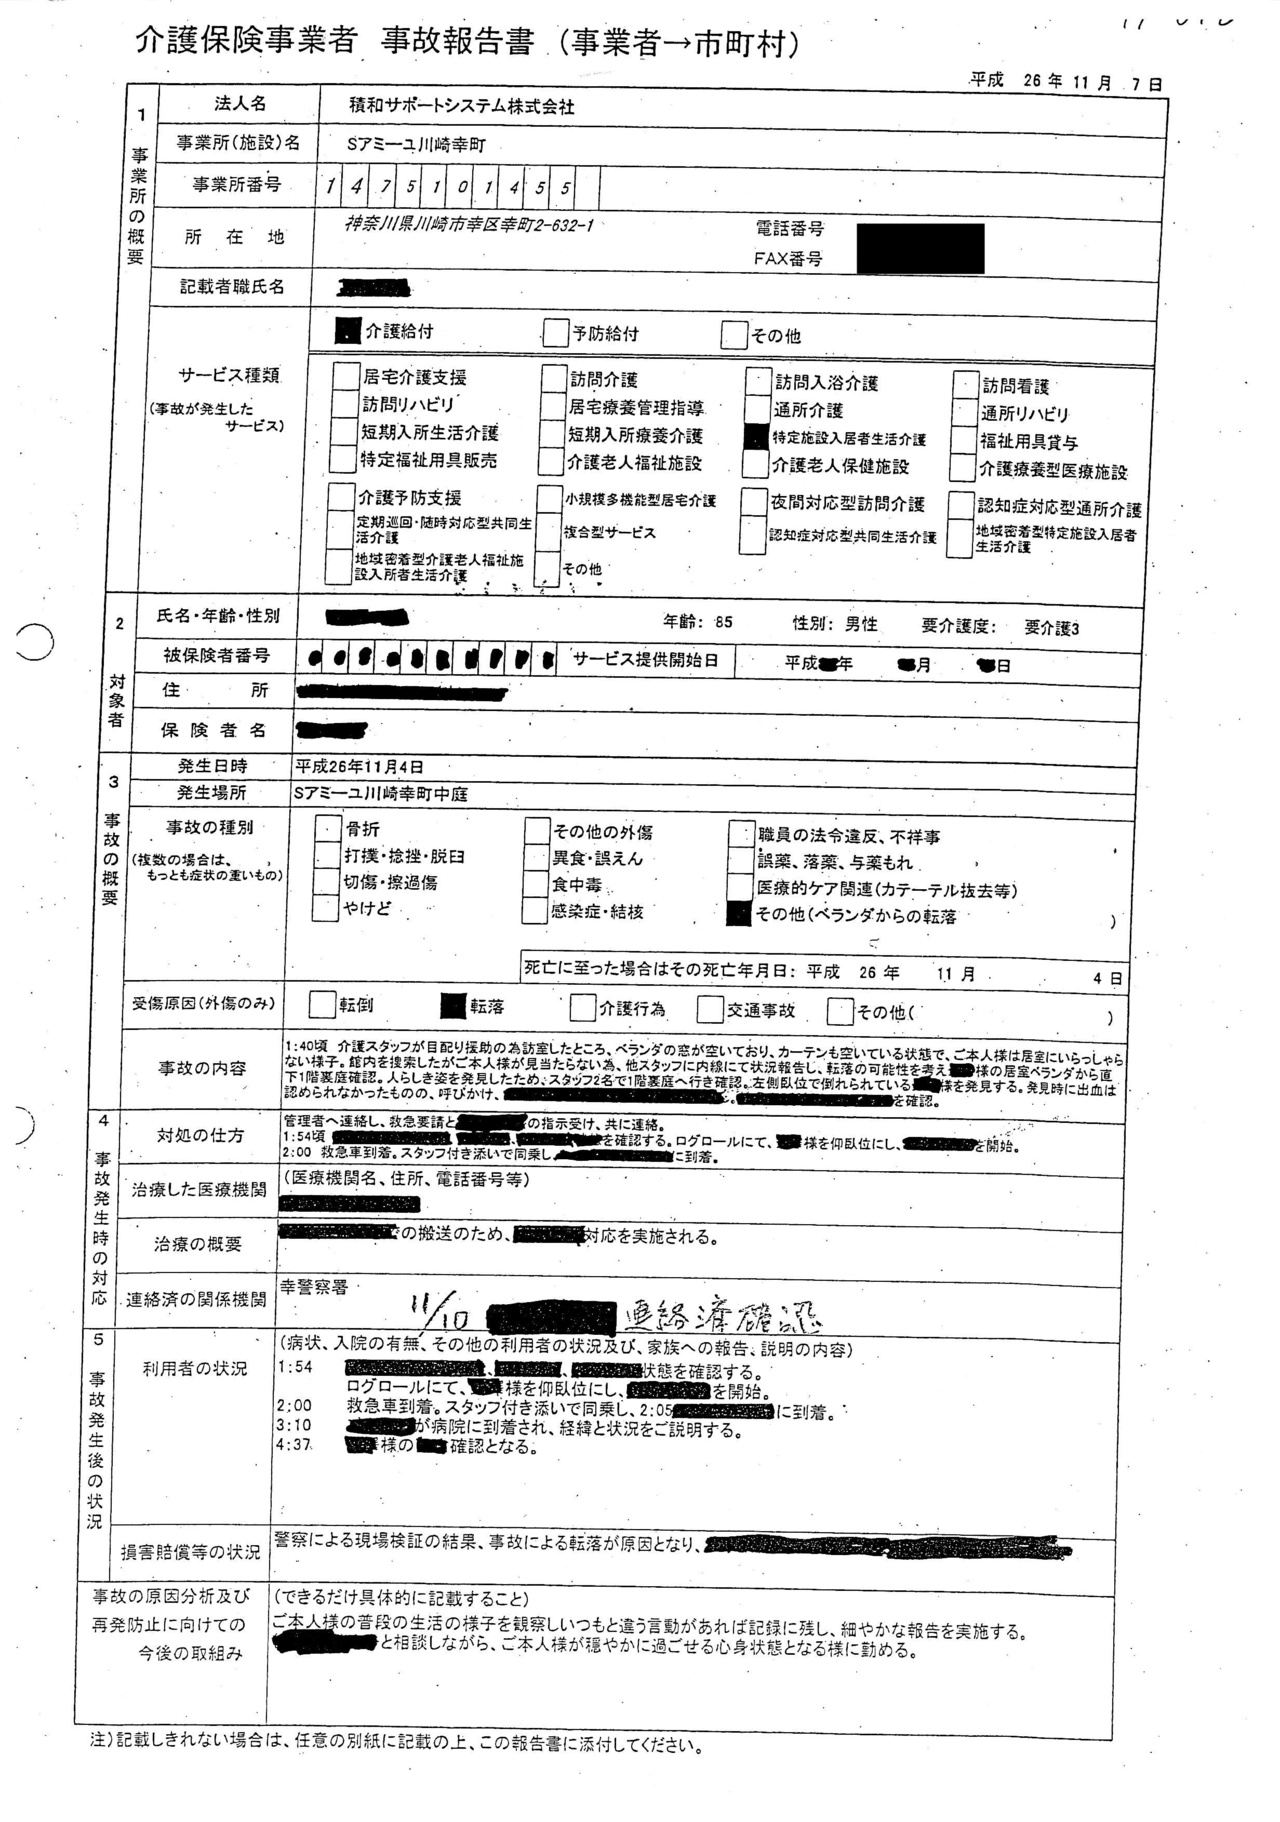 介護保険事業者 事故報告書（事業者→市町村）
平成 26年 11月 7日
1 事業所の概要
法人名 積和サポートシステム株式会社
事業所(施設)名 Sアミーユ川崎幸町
事業所番号 1 4 7 5 1 0 1 4 5 5
所 在 地 神奈川県川崎市幸区幸町2-632-1 電話番号
FAX番号
記載者職氏名
サービス種類
(事故が発生したサービス)
■介護給付 □予防給付 □その他
□居宅介護支援 □訪問介護 □訪問入浴介護 □訪問看護
□訪問リハビリ □居宅療養管理指導 □通所介護 □通所リハビリ
□短期入所生活介護 □短期入所療養介護 ■特定施設入居者生活介護 □福祉用具貸与
□特定福祉用具販売 □介護老人福祉施設 □介護老人保健施設 □介護療養型医療施設
□介護予防支援 □小規模多機能型居宅介護 □夜間対応型訪問介護 □認知症対応型通所介護
□定期巡回・随時対応型共同生活介護 □複合型サービス □認知症対応型共同生活介護 □地域密着型特定施設入居者生活介護
□地域密着型介護老人福祉施設入所者生活介護 □その他
2 対象者
氏名・年齢・性別 年齢: 85 性別: 男性 要介護度: 要介護3
被保険者番号 サービス提供開始日 平成 年 月 日
住 所
保 険 者 名
3 事故の概要
発生日時 平成26年11月4日
発生場所 Sアミーユ川崎幸町中庭
事故の種別
(複数の場合は、
もっとも症状の重いもの)
□骨折 □その他の外傷 □職員の法令違反、不祥事
□打撲・捻挫・脱臼 □異食・誤えん □誤薬、落薬、与薬もれ
□切傷・擦過傷 □食中毒 □医療的ケア関連(カテーテル抜去等)
□やけど □感染症・結核 ■その他(ベランダからの転落 )
死亡に至った場合はその死亡年月日: 平成 26 年 11 月 4 日
受傷原因(外傷のみ) □転倒 ■転落 □介護行為 □交通事故 □その他( )
事故の内容
1:40頃 介護スタッフが目配り援助の為訪室したところ、ベランダの窓が空いており、カーテンも空いている状態で、ご本人様は居室にいらっしゃら
ない様子。館内を捜索したがご本人様が見当たらない為、他スタッフに内線にて状況報告し、転落の可能性を考え 様の居室ベランダから直
下1階裏庭確認。人らしき姿を発見したため、スタッフ2名で1階裏庭へ行き確認。左側臥位で倒れられている 様を発見する。発見時に出血は
認められなかったものの、呼びかけ、 を確認。
4 事故発生時の対応
対処の仕方
管理者へ連絡し、救急要請と の指示受け、共に連絡。
1:54頃 を確認する。ログロールにて、 様を仰臥位にし、 を開始。
2:00 救急車到着。スタッフ付き添いで同乗し、 に到着。
治療した医療機関 (医療機関名、住所、電話番号等)
治療の概要 での搬送のため、 対応を実施される。
連絡済の関係機関 幸警察署
11/10 連絡済確認
5 事故発生後の状況
利用者の状況
(病状、入院の有無、その他の利用者の状況及び、家族への報告、説明の内容)
1:54 状態を確認する。
ログロールにて、 様を仰臥位にし、 を開始。
2:00 救急車到着。スタッフ付き添いで同乗し、2:05 に到着。
3:10 が病院に到着され、経緯と状況をご説明する。
4:37 様の 確認となる。
損害賠償等の状況 警察による現場検証の結果、事故による転落が原因となり、
事故の原因分析及び
再発防止に向けての
今後の取組み
(できるだけ具体的に記載すること)
ご本人様の普段の生活の様子を観察しいつもと違う言動があれば記録に残し、細やかな報告を実施する。
と相談しながら、ご本人様が穏やかに過ごせる心身状態となる様に勤める。
注)記載しきれない場合は、任意の別紙に記載の上、この報告書に添付してください。